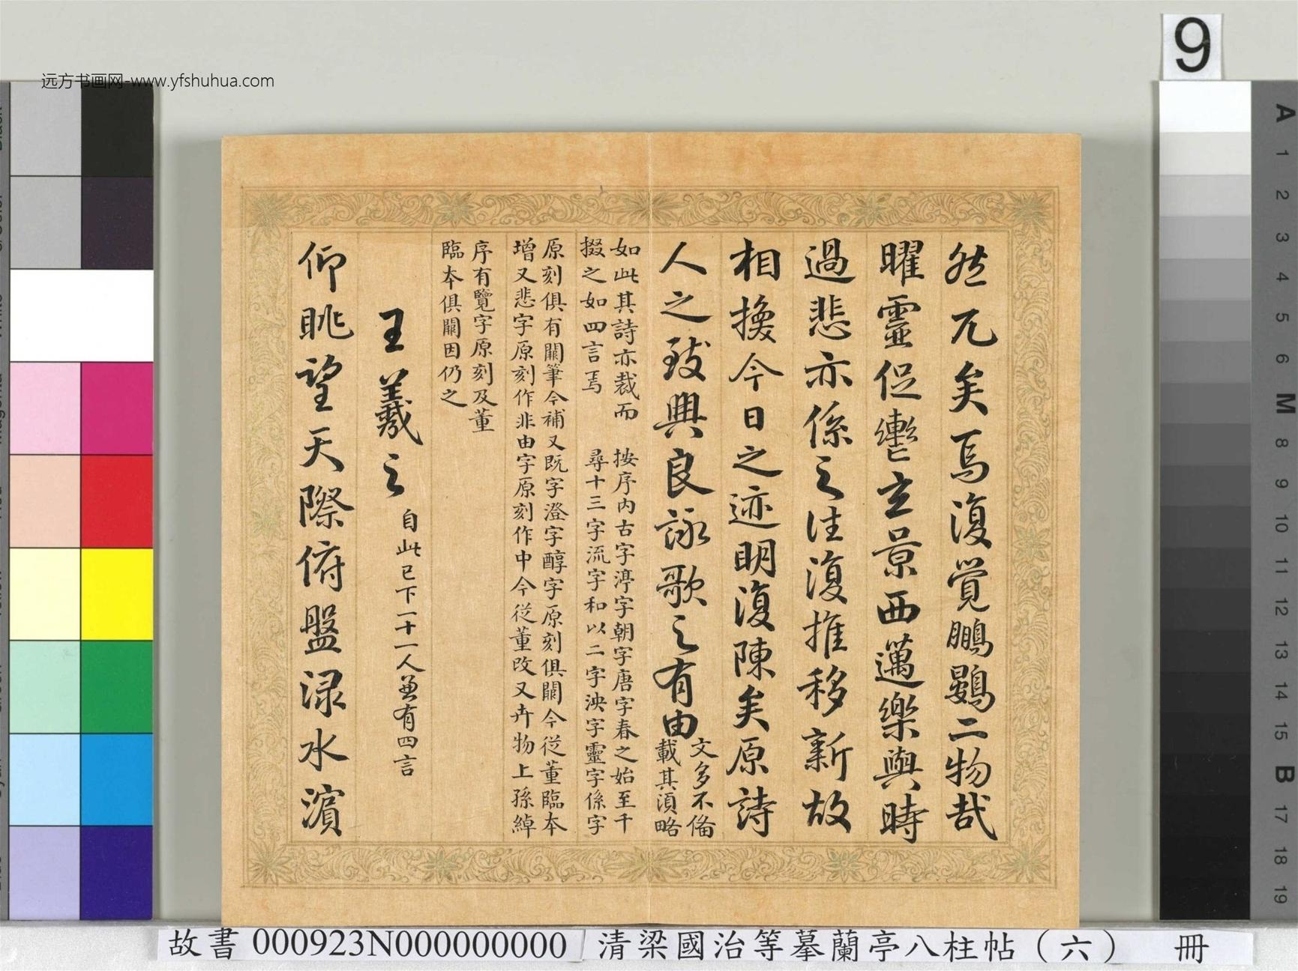 远方书画网-www.yfshuhua.com
9
然兀矣焉復覺鵬鷃二物哉
曜靈促轡玄景西邁樂與時
過悲亦係之往復推移新故
相換今日之迹明復陳矣原詩
人之致興良詠歌之有由文多不備
載其湏略
如此其詩亦裁而
掇之如四言焉
按序内古字渟字朝字唐字春之始至千
尋十三字流字和以二字泱字靈字係字
原刻俱有闕筆今補又既字澄字醇字原刻俱闕今從董臨本
增又悲字原刻作非由字原刻作中今從董改又卉物上孫綽
序有覽字原刻及董
臨本俱闕因仍之
王羲之自此已下一十一人兼有四言
仰眺望天際俯盤渌水濵
A
1
2
3
4
5
6
M
8
9
10
11
12
13
14
15
B
17
18
19
故書 000923N000000000 清梁國治等摹蘭亭八柱帖（六） 冊